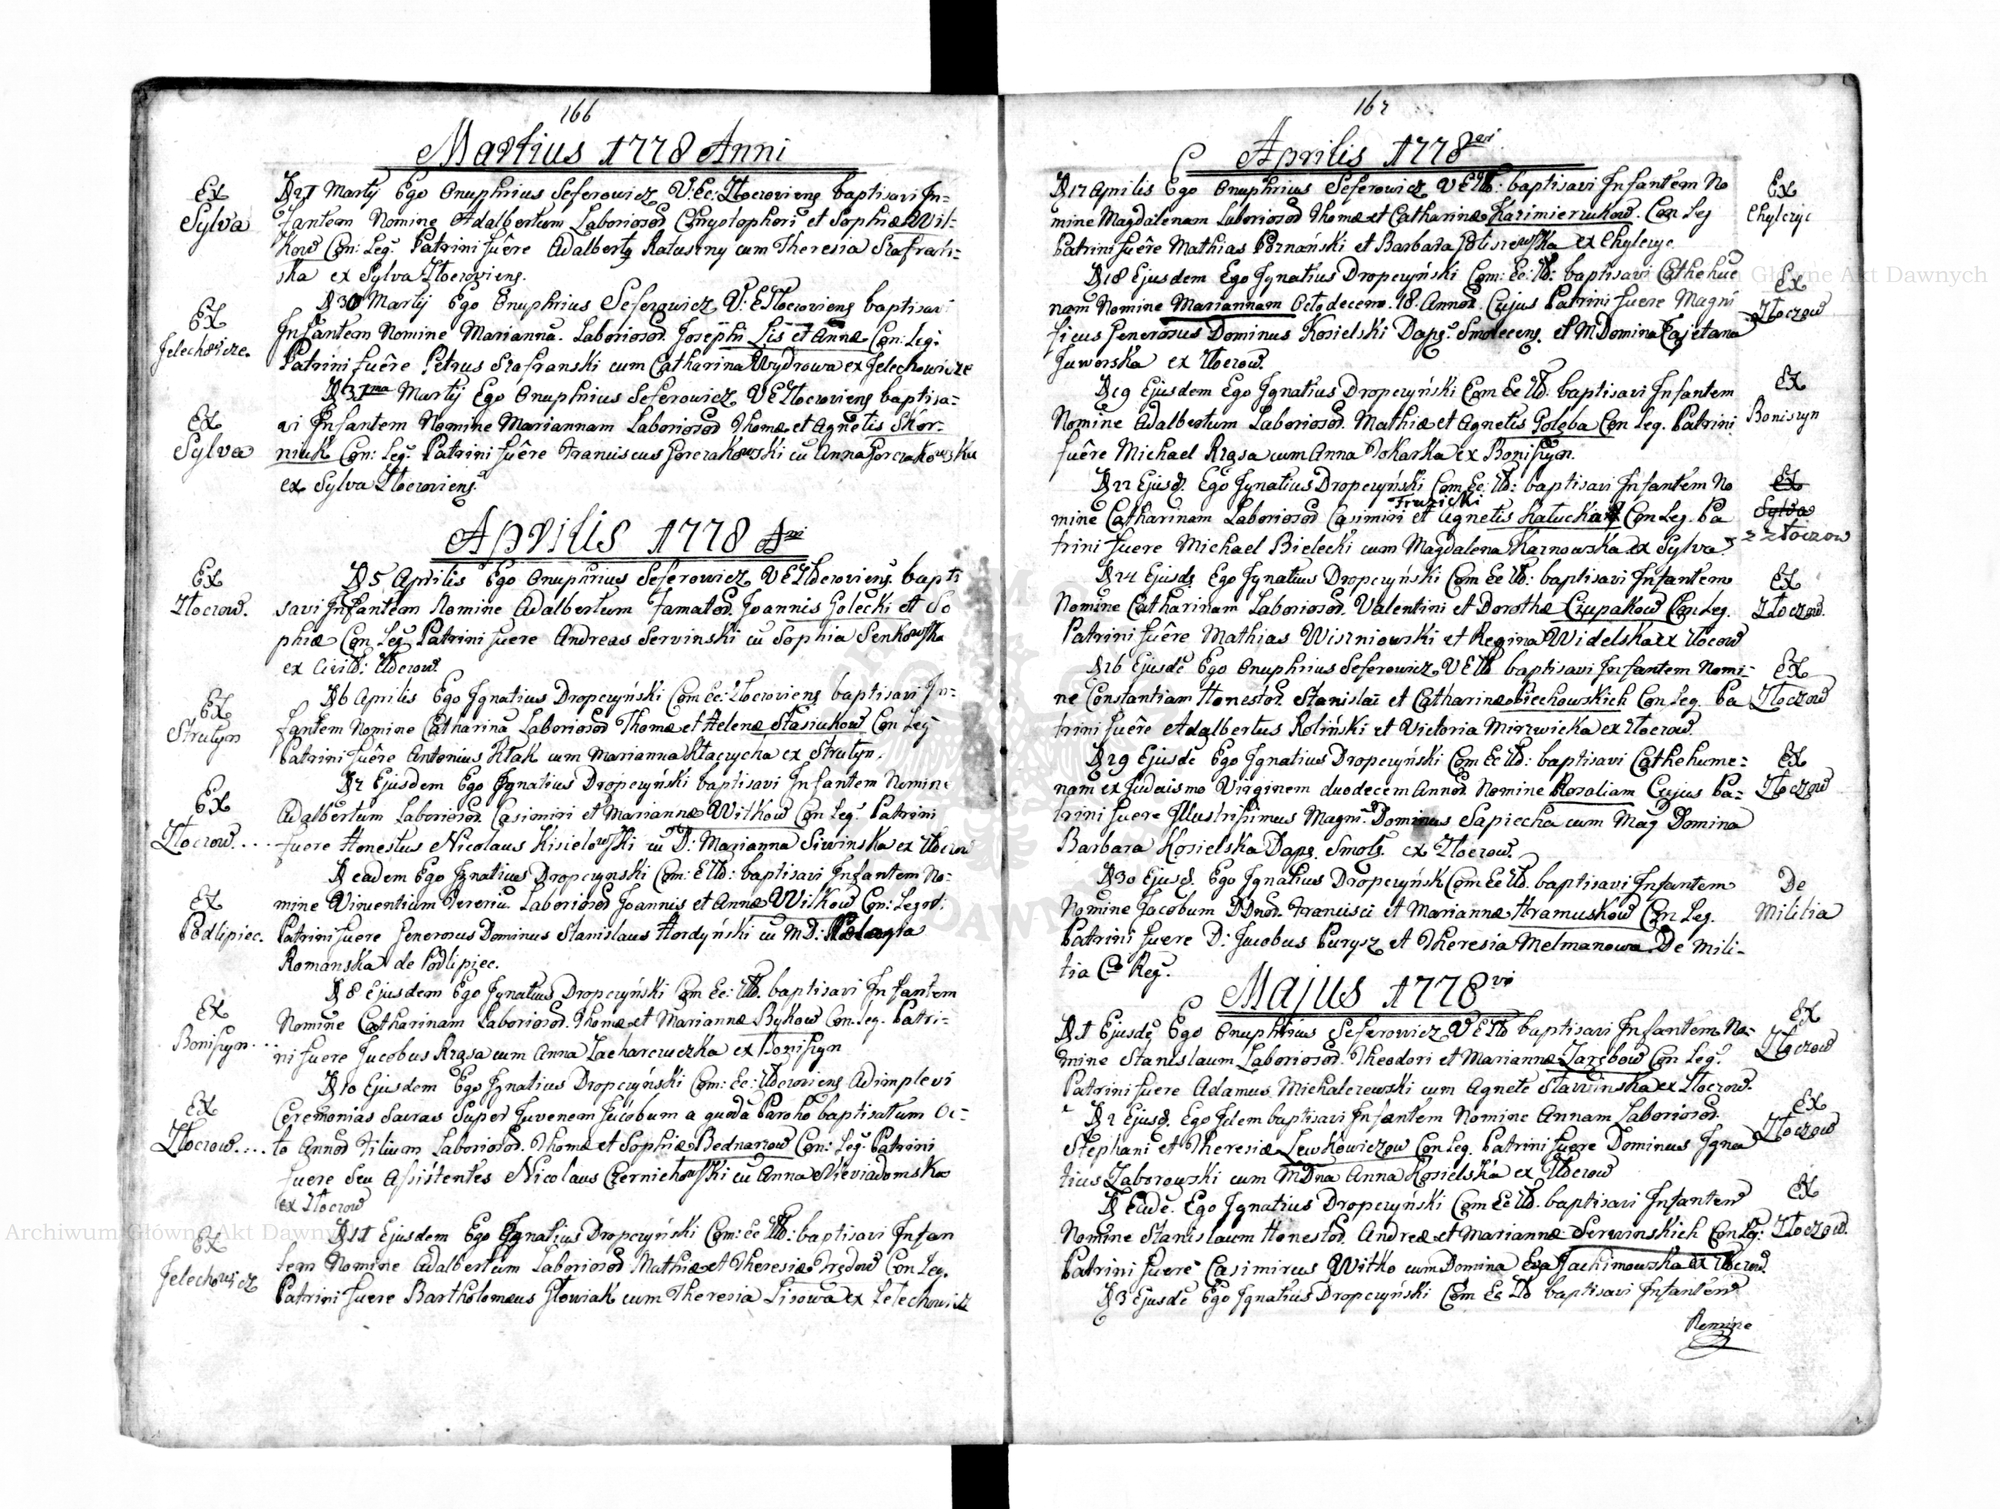 166
Martius 1778 Anni
Ex
Sylva
D 27 Martÿ Ego Onuphrius Seferowicz V. Ec: Złocroviens baptisavi In-
fantem Nomine Adalbertum Laboriosoꝝ Chrystophori et Sophiæ Wit-
kow Con: Leg: Patrini fuêre Adalbertg Ratuszny cum Theresia Szafrań-
ska ex Sylva Złocroviens.
Ex
Jelechowicze.
D 30 Martÿ Ego Onuphrius Seferowicz V: E Złocroviens baptisavi
Infantem Nomine Mariannã. Laboriosoꝝ. Josephi Lis et Annæ Con: Leg:
Patrini fuêre Petrus Szafranski cum Catharina Wydrowa ex Jelechowicze
Ex
Sylva
D 31ma Martÿ Ego Onuphrius Seferowicz V E Złocroviens baptisa-
vi Infantem Nomine Mariannam Laboriosoꝝ Thomæ et Agnetis Skor-
niuk Con: Leg: Patrini fuêre Franciscus Gorczakowski cũ Anna Gorczakowska
ex Sylva Złocroviens.
Aprilis 1778 Ani
Ex
Złoczow.
D 5 Aprilis Ego Onuphrius Seferowicz V E Złocroviens. bapti
savi Infantem Nomine Adalbertum Famatoꝝ. Joannis Golecki et So
phiæ Con Leg: Patrini fuere Andreas Servinski cũ Sophia Senkowska
ex Civit: Złoczow.
Ex
Strutyn
D 6 Aprilis Ego Ignatius Dropczyński Com Ec: Złocroviens baptisavi In-
fantem Nomine Catharinã Laboriosoꝝ Thomæ et Helenæ Stasiukow Con Leg
Patrini fuêre Antonius Kłak cum Marianna Kłaczycha ex Strutyn.
Ex
Złoczow....
D 7 Ejusdem Ego Ignatius Dropczyński baptisavi Infantem Nomine
Adalbertum Laboriosoꝝ. Casimiri et Mariannæ Witkow Con Leg: Patrini
fuere Honestus Nicolaus Kisielowski cũ D: Marianna Siwinska ex Złoczow
Ex
Podlipiec.
D eadem Ego Ignatius Dropczynski Com: E Zło: baptisavi Infantem No-
mine Vincentium Fereriũ. Laboriosoꝝ Joannis et Annæ Witkow Con: Legit:
Patrini fuere Generosus Dominus Stanislaus Hordyński cũ M D: Pelagia
Romanska de Podlipiec.
Ex
Boniszyn...
D 8 Ejusdem Ego Ignatius Dropczyński Com Ec: Zło. baptisavi Infantem
Nomine Catharinam Laboriosoꝝ. Thomæ et Mariannæ Bykow Con. Leg. Patri-
ni fuere Jacobus Rząsa cum Anna Zacharczuczka ex Boniszyn
Ex
Złoczow....
D 10 Ejusdem Ego Ignatius Dropczyński Com: Ec: Złocroviens Adimplevi
Ceremonias Sacras Super Juvenem Jacobum a quodã Parocho baptisatum Oc-
to Annoꝝ Filium Laboriosoꝝ. Thomæ et Sophiæ Bednarzow Con: Leg: Patrini
fuere Seu Assistentes Nicolaus Czerniehowski cũ Anna Nieviadomska
ex Złoczow
Ex
Jelechowicz
D 11 Ejusdem Ego Ignatius Dropczyński Com: Ec Zło: baptisavi Infan
tem Nomine Adalbertum Laboriosoꝝ Mathiæ et Theresiæ Con Leg.
Patrini fuere Bartholomæus Głowiak cum Theresia Lisowa ex Jelechowicz
167
Aprilis 1778
Ex
Chylczyc
D 17 Aprilis Ego Onuphrius Seferowicz V E Zło: baptisavi Infantem No
mine Magdalenam Laboriosoꝝ Thomæ et Catharinæ Kazimierzukow. Con Leg
Patrini fuêre Mathias Poznański et Barbara ex Chylczyc
Ex
Złoczow
D 18 Ejusdem Ego Ignatius Dropczyński Com: Ec: Zło: baptisavi Cathehue
nam Nomine Mariannam Octodecem. 18. Annoꝝ. Cujus Patrini fuere Magni
ficus Generosus Dominus Kosielski Daps: Smolecens. et M Domina Cajetana
Jaworska ex Złoczow.
Ex
Boniszyn
D 19 Ejusdem Ego Ignatius Dropczyński Com Ec Zło. baptisavi Infantem
Nomine Adalbertum Laboriosoꝝ. Mathiæ et Agnetis Gołęba Con Leg. Patrini
fuêre Michael Rząsa cum Anna Tokarka ex Boniszyn.
Ex
Sylva
z Złoczow
D 22 Ejusꝝ. Ego Ignatius Dropczyński Com Ec: Zło: baptisavi Infantem No
Fruzicki
mine Catharinam Laboriosoꝝ Casimiri et Agnetis Con Leg. Pa
trini fuere Michael Bielecki cum Magdalena Karnowska ex Sylva
Ex
Złoczow.
D 24 Ejusdę Ego Ignatius Dropczyński Com Ec Zło: baptisavi Infantem
Nomine Catharinam Laboriosoꝝ. Valentini et Dorothæ Czupakow Con Leg.
Patrini fuêre Mathias Wiszniowski et Regina Widelska ex Złoczow
Ex
Złoczow
D 26 Ejusdẽ Ego Onuphrius Seferowicz V E Zło baptisavi Infantem Nomi-
ne Constantiam Honestoꝝ. Stanislai et Catharinæ Biechowskich Con Leg. Pa
trini fuêre Adalbertus Roliński et Victoria Mirzwicka ex Złoczow.
Ex
Złoczow
D 29 Ejusdẽ Ego Ignatius Dropczyński Com Ec Zło: baptisavi Cathehume-
nam ex Judaismo Virginem duodecem Annoꝝ Nomine Rosaliam Cujus Pa-
trini fuere Illustrissimus Magni: Dominus Sapiecha cum Mag Domina
Barbara Kosielska Daps. Smols. ex Złoczow.
De
Militia
D 30 Ejusꝝ. Ego Ignatius Dropczyńsk Com Ec Zło. baptisavi Infantem
Nomine Jacobum D Dnoꝝ. Francisci et Mariannæ Hramuskow Con Leg.
Patrini fuere D: Jacobus Purysz et Theresia Melmanowa De Mili-
tia Reg.
Majus 1778
Ex
Złoczow
D 1 Ejusdẽ Ego Onuphrius Seferowicz V E Zło baptisavi Infantem No-
mine Stanislaum Laboriosoꝝ. Theodori et Mariannæ Zarębow Con Leg:
Patrini fuere Adamus Michalczewski cum Agnete Stawinska ex Złoczow.
Ex
Złoczow
D 2 Ejusꝝ. Ego Idem baptisavi Infantem Nomine Annam Laboriosoꝝ.
Stephani et Theresiæ Lewkowiczow Con Leg. Patrini fuere Dominus Igna
tius Zaborowski cum M Dna Anna Kosielska ex Złoczow
Ex
Złoczow.
D Eadẽ. Ego Ignatius Dropczyński Com Ec Zło. baptisavi Infantem
Nomine Stanislaum Honestoꝝ. Andreæ et Mariannæ Serwinskich Con Leg:
Patrini fuere Casimirus Witko cum Domina Eva Jachimowska ex Złoczow.
D 3 Ejusdẽ Ego Ignatius Dropczyński Com Ec Zło baptisavi Infantem
Nomine
Archiwum Główne Akt Dawnych